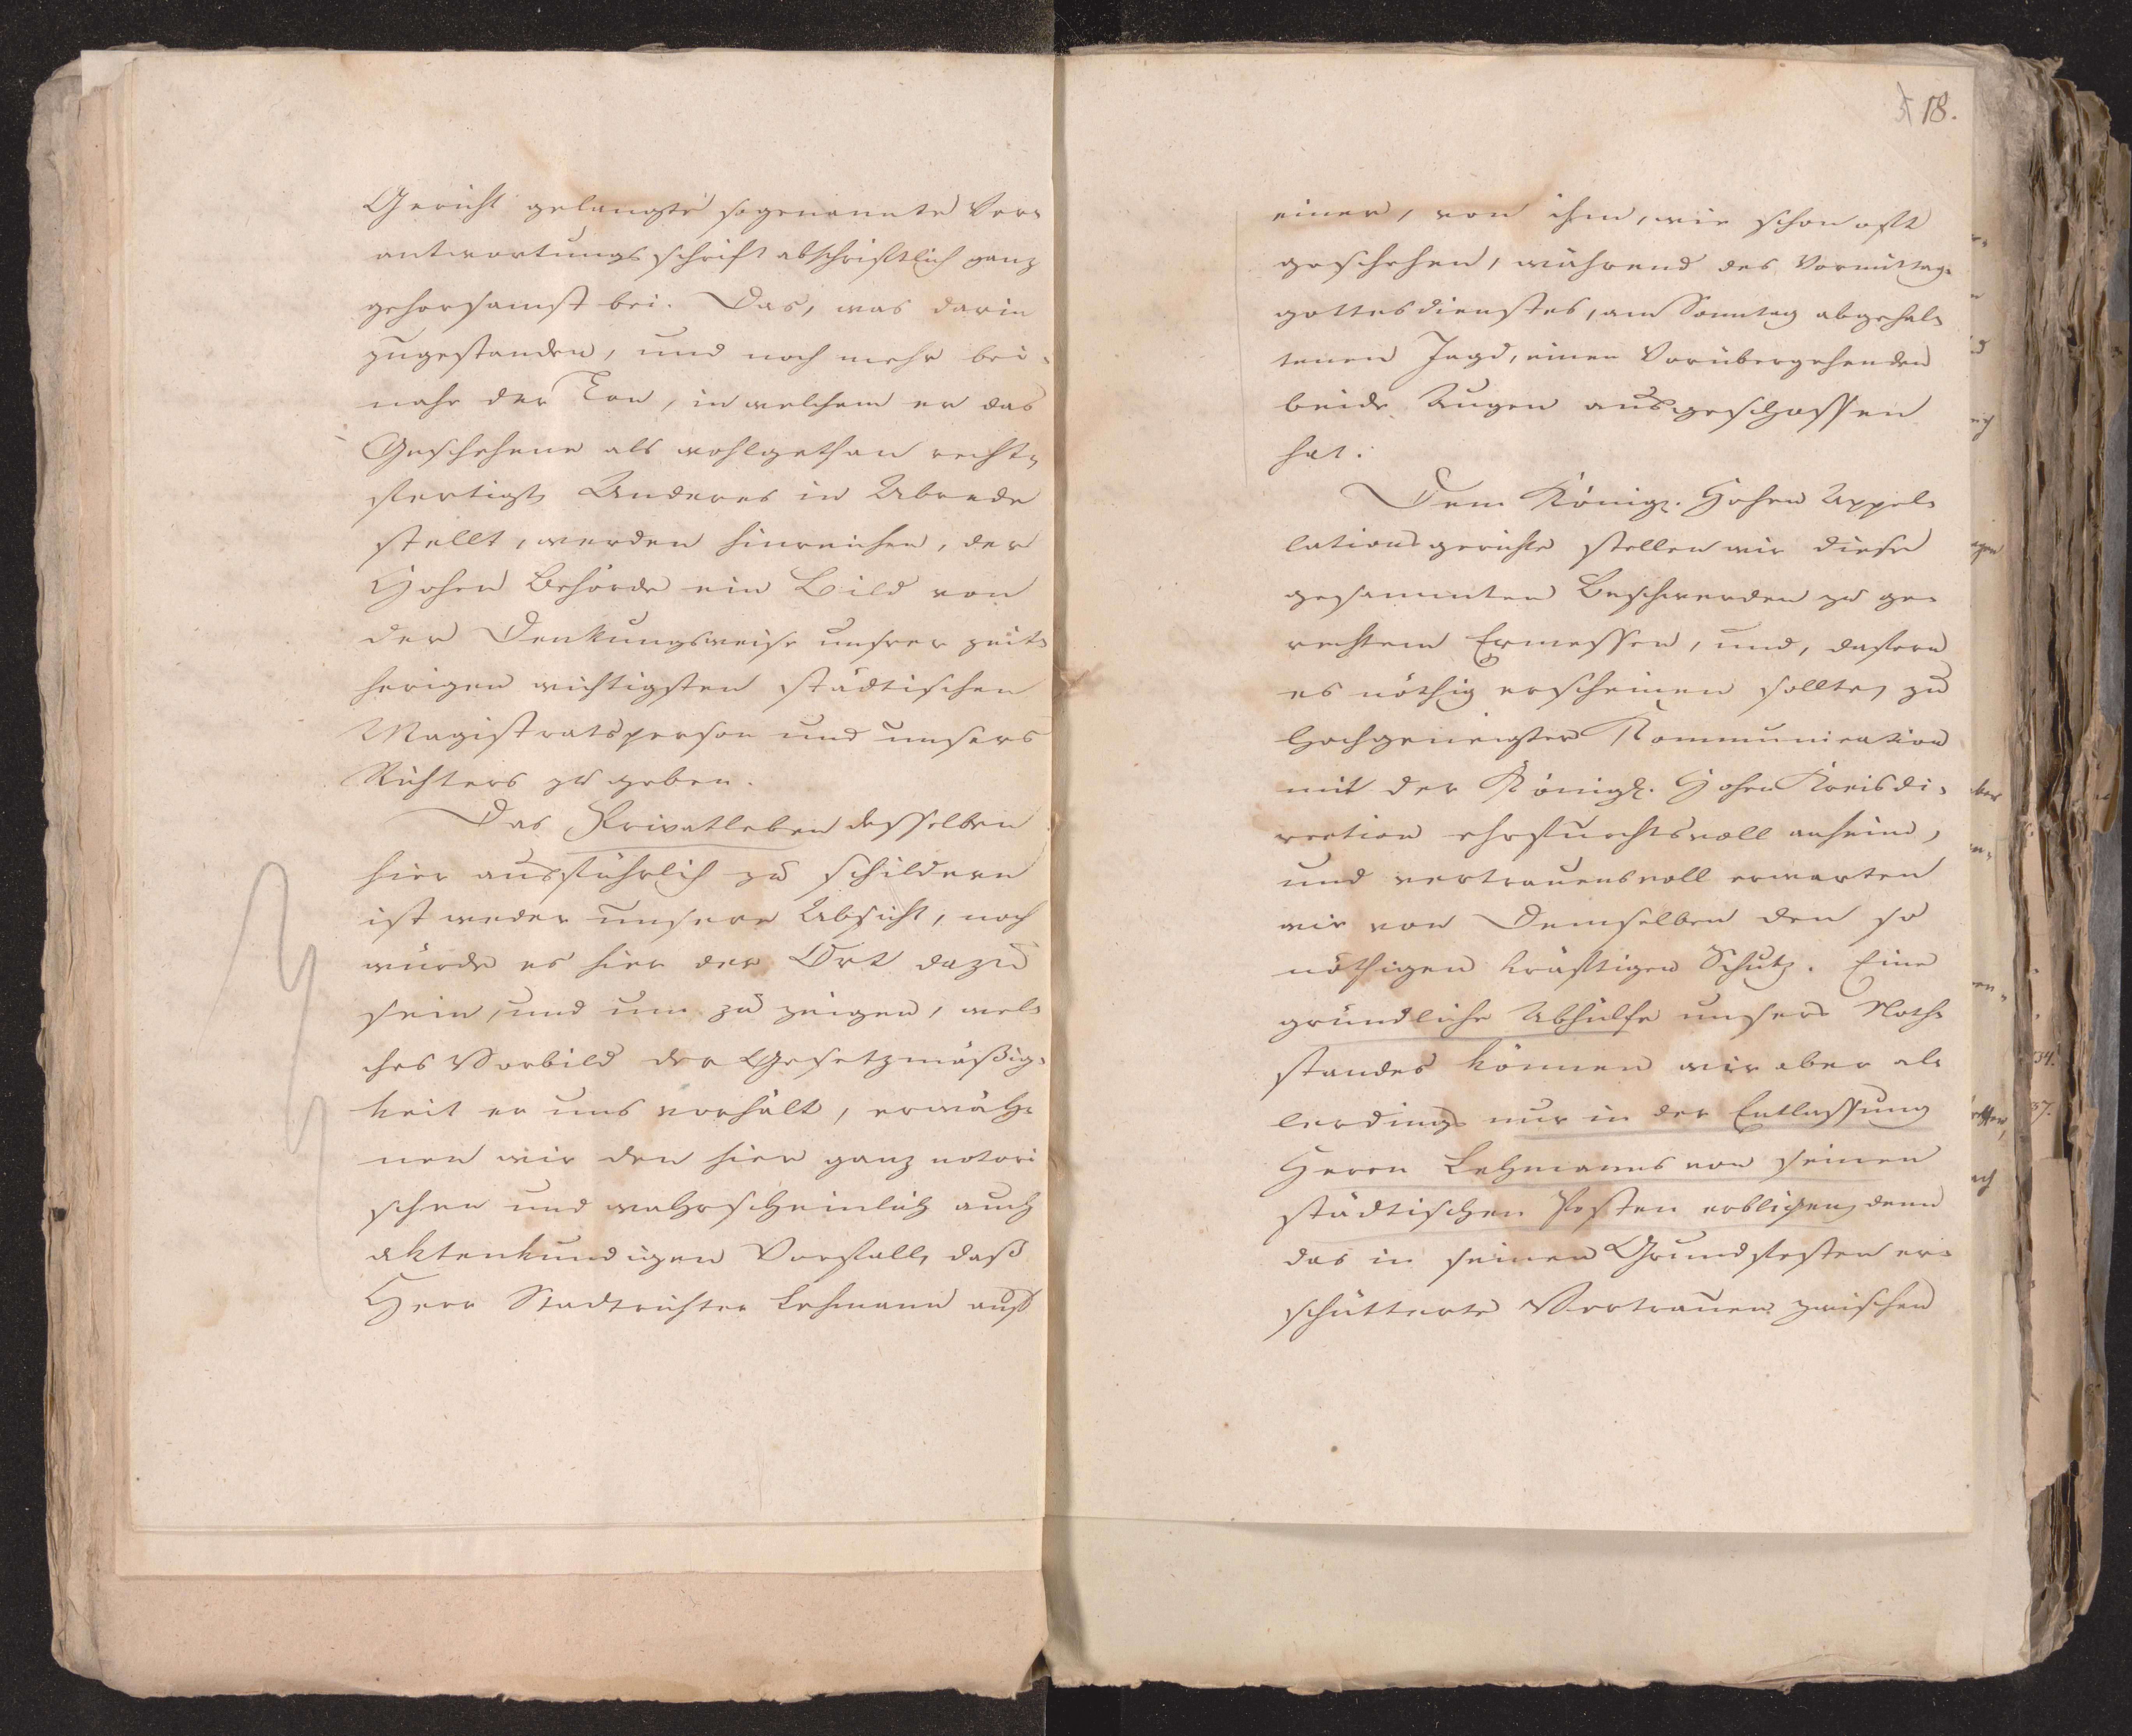 Gericht gelangte sogenannte Ver-
antwortungsschrift abschriftlich ganz
gehorsamst bei. Das, was darin
zugestanden, und noch mehr bei-
nahe der Ton, in welchem er das
Geschehene als wohlgethan recht-
fertigt, Anderes in Abrede
stellt, werden hinreichen, der
Hohen Behörde ein Bild von
der Denkungsweise unsrer zeit-
herigen wichtigsten städtischen
Magistratsperson und unsers
Richters zu geben.
Das Privatleben desselben
hier ausführlich zu schildern
ist weder unsere Absicht, noch
würde es hier der Ort dazu
sein, und um zu zeigen, wel-
ches Vorbild der Gesetzmäßig-
keit er uns vorhält, erwäh-
nen wir den hier ganz notori
schen und wahrscheinlich auch
aktenkundigen Vorfall, daß
Herr Stadtrichter Lehmann auf
18.
einer, von ihm, wie schon oft
geschehen, während des Vormittags-
gottesdienstes, am Sonntag abgehal-
tenen Jagd, einen Vorübergehenden
beide Augen ausgeschossen
hat.
Dem Königl. Hohen Appel-
lationsgerichte stellen wir diese
gesammten Beschwerden zu ge-
rechtem Ermessen, und, dafern
es nöthig erscheinen sollte, zu
hochgeneigter Kommunication
mit der Königl. Hohen Kreisdi-
rection ehrfurchtsvoll anheim,
und vertrauensvoll erwarten
wir von Demselben den so
nöthigen kräftigen Schutz. Eine
gründliche Abhülfe unsers Noth-
standes können wir aber al-
lerdings nur in der Entlassung
Herrn Lehmanns von seinen
städtischen Posten erblicken, denn
das in seinen Grundfesten er-
schütterte Vertrauen zwischen